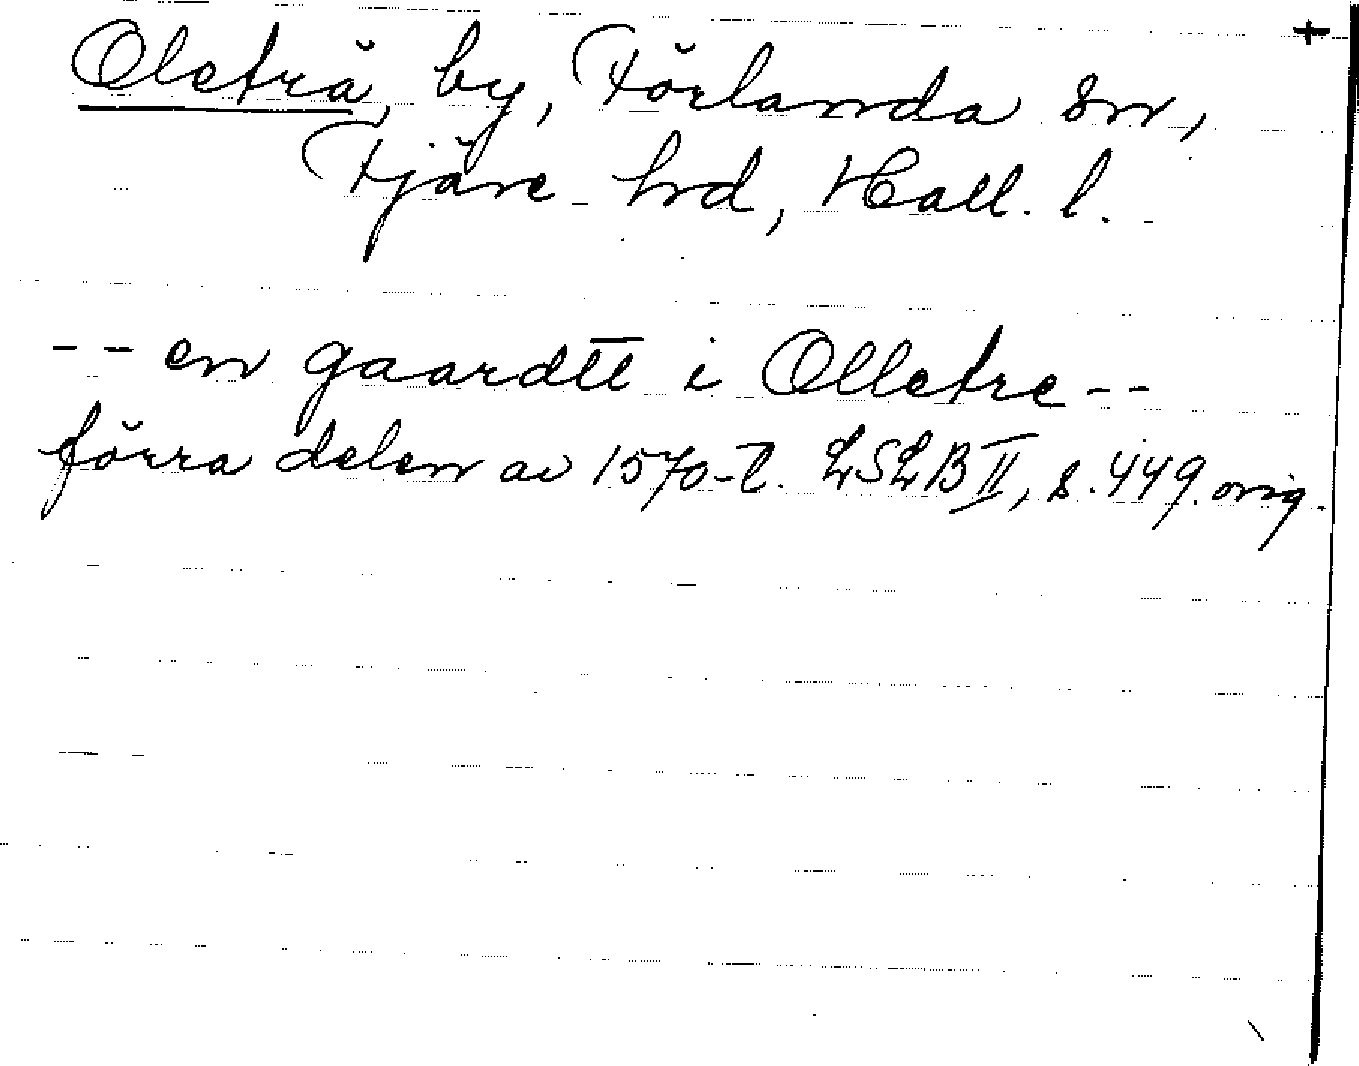 Oleträ, by, Förlanda sn,
Fjäre hd, Hall. l.
-- en gaardtt i Olletre --
förra delen av 1570-t. LSLB II, s. 449. orig.